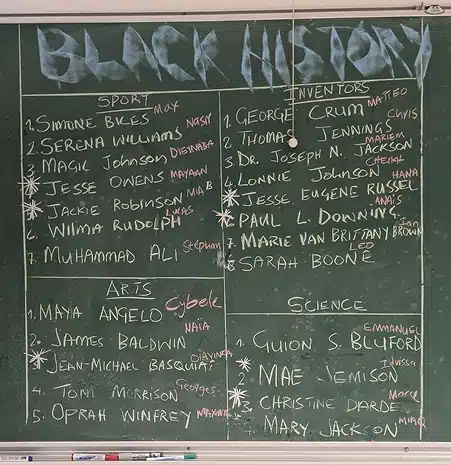 BLACK HISTORY
SPORT
1. SIMONE BILES Max
2. SERENA WILLIAMS Nasir
3. MAGIC JOHNSON DIEYNABA
4. JESSE OWENS MAYAAN
5. JACKIE ROBINSON MIA B
6. WILMA RUDOLPH LUCAS
7. MUHAMMAD ALI Stephan
ARTS
1. MAYA ANGELO Cybele
2. JAMES BALDWIN NAÏA
3. JEAN-MICHAEL BASQUIAT
4. TONI MORRISON Georges
5. OPRAH WINFREY
INVENTORS
1. GEORGE CRUM MATTEO
2. THOMAS JENNINGS Chris
3. DR. JOSEPH N. JACKSON MARIEM
4. LONNIE JOHNSON CHEIKH
5. JESSE EUGENE RUSSEL HANA
6. PAUL L. DOWNING ANAÏS
7. MARIE VAN BRITTANY BROWN Ian
8. SARAH BOONE LEO
SCIENCE
1. GUION S. BLUFORD EMMANUEL
2. MAE JEMISON Idrissa
3. CHRISTINE DARDE
4. MARY JACKSON